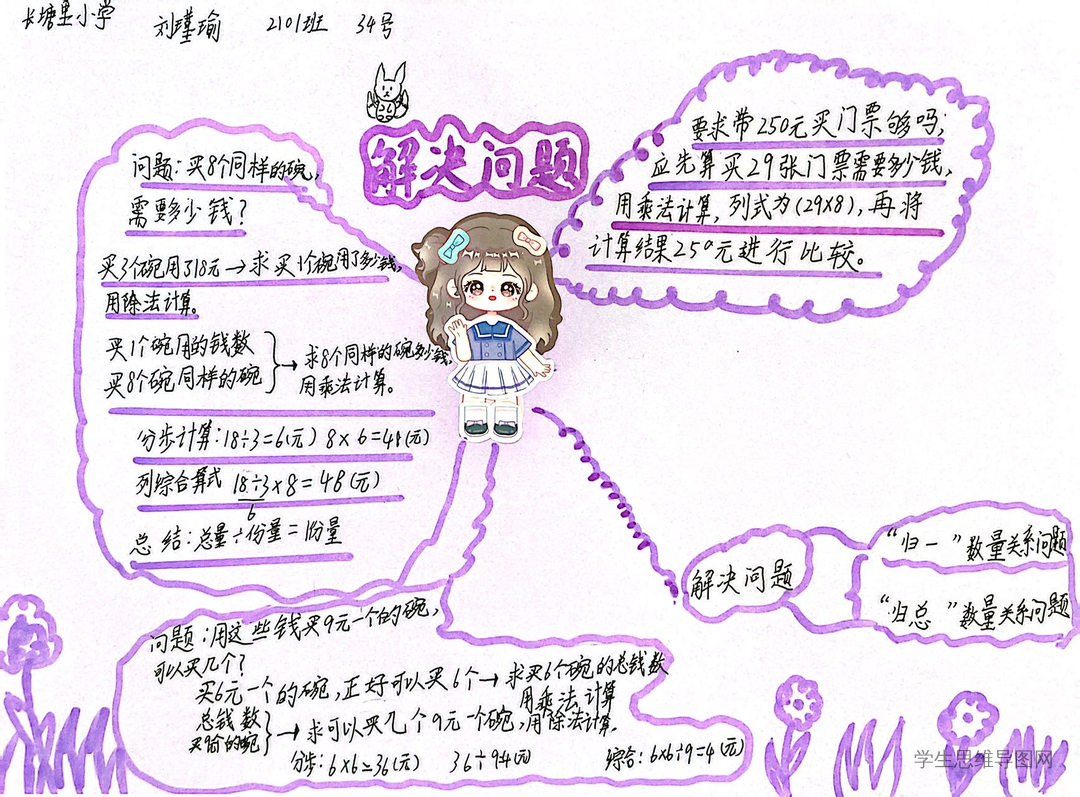 长塘里小学 刘瑾瑜 2101班 34号
解决问题
问题:买8个同样的碗,
需要多少钱?
买3个碗用了18元→求买1个碗用了多少钱,
用除法计算。
买1个碗用的钱数
买8个碗同样的碗
→求8个同样的碗多少钱,
用乘法计算。
分步计算:18÷3=6(元) 8×6=48(元)
列综合算式 18÷3×8=48(元)
6
总结:总量÷份量=1份量
要求带250元买门票够吗;
应先算买29张门票需要多少钱,
用乘法计算,列式为(29×8),再将
计算结果250元进行比较。
解决问题
“归一”数量关系问题
“归总”数量关系问题
问题:用这些钱买9元一个的碗,
可以买几个?
买6元一个的碗,正好可以买6个→求买6个碗的总钱数
用乘法计算
总钱数
→求可以买几个9元一个碗,用除法计算。
分步:6×6=36(元) 36÷9=4(元) 综合:6×6÷9=4(元)
学生思维导图网